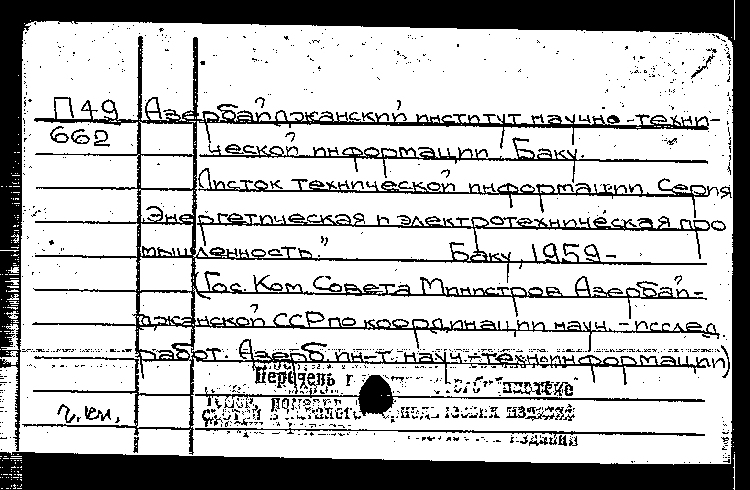 П49 Азербайджанский институт научно-техни-
662 ческой информации. Баку.
Листок технической информации. Серия
"Энергетическая и электротехническая про
мышленность." Баку, 1959-
(Гос. Ком. Совета Министров Азербай-
джанской ССР по координации науч.-исслед.
работ. Азерб. ин-т науч.-техн. информации)
Перечень
изданий